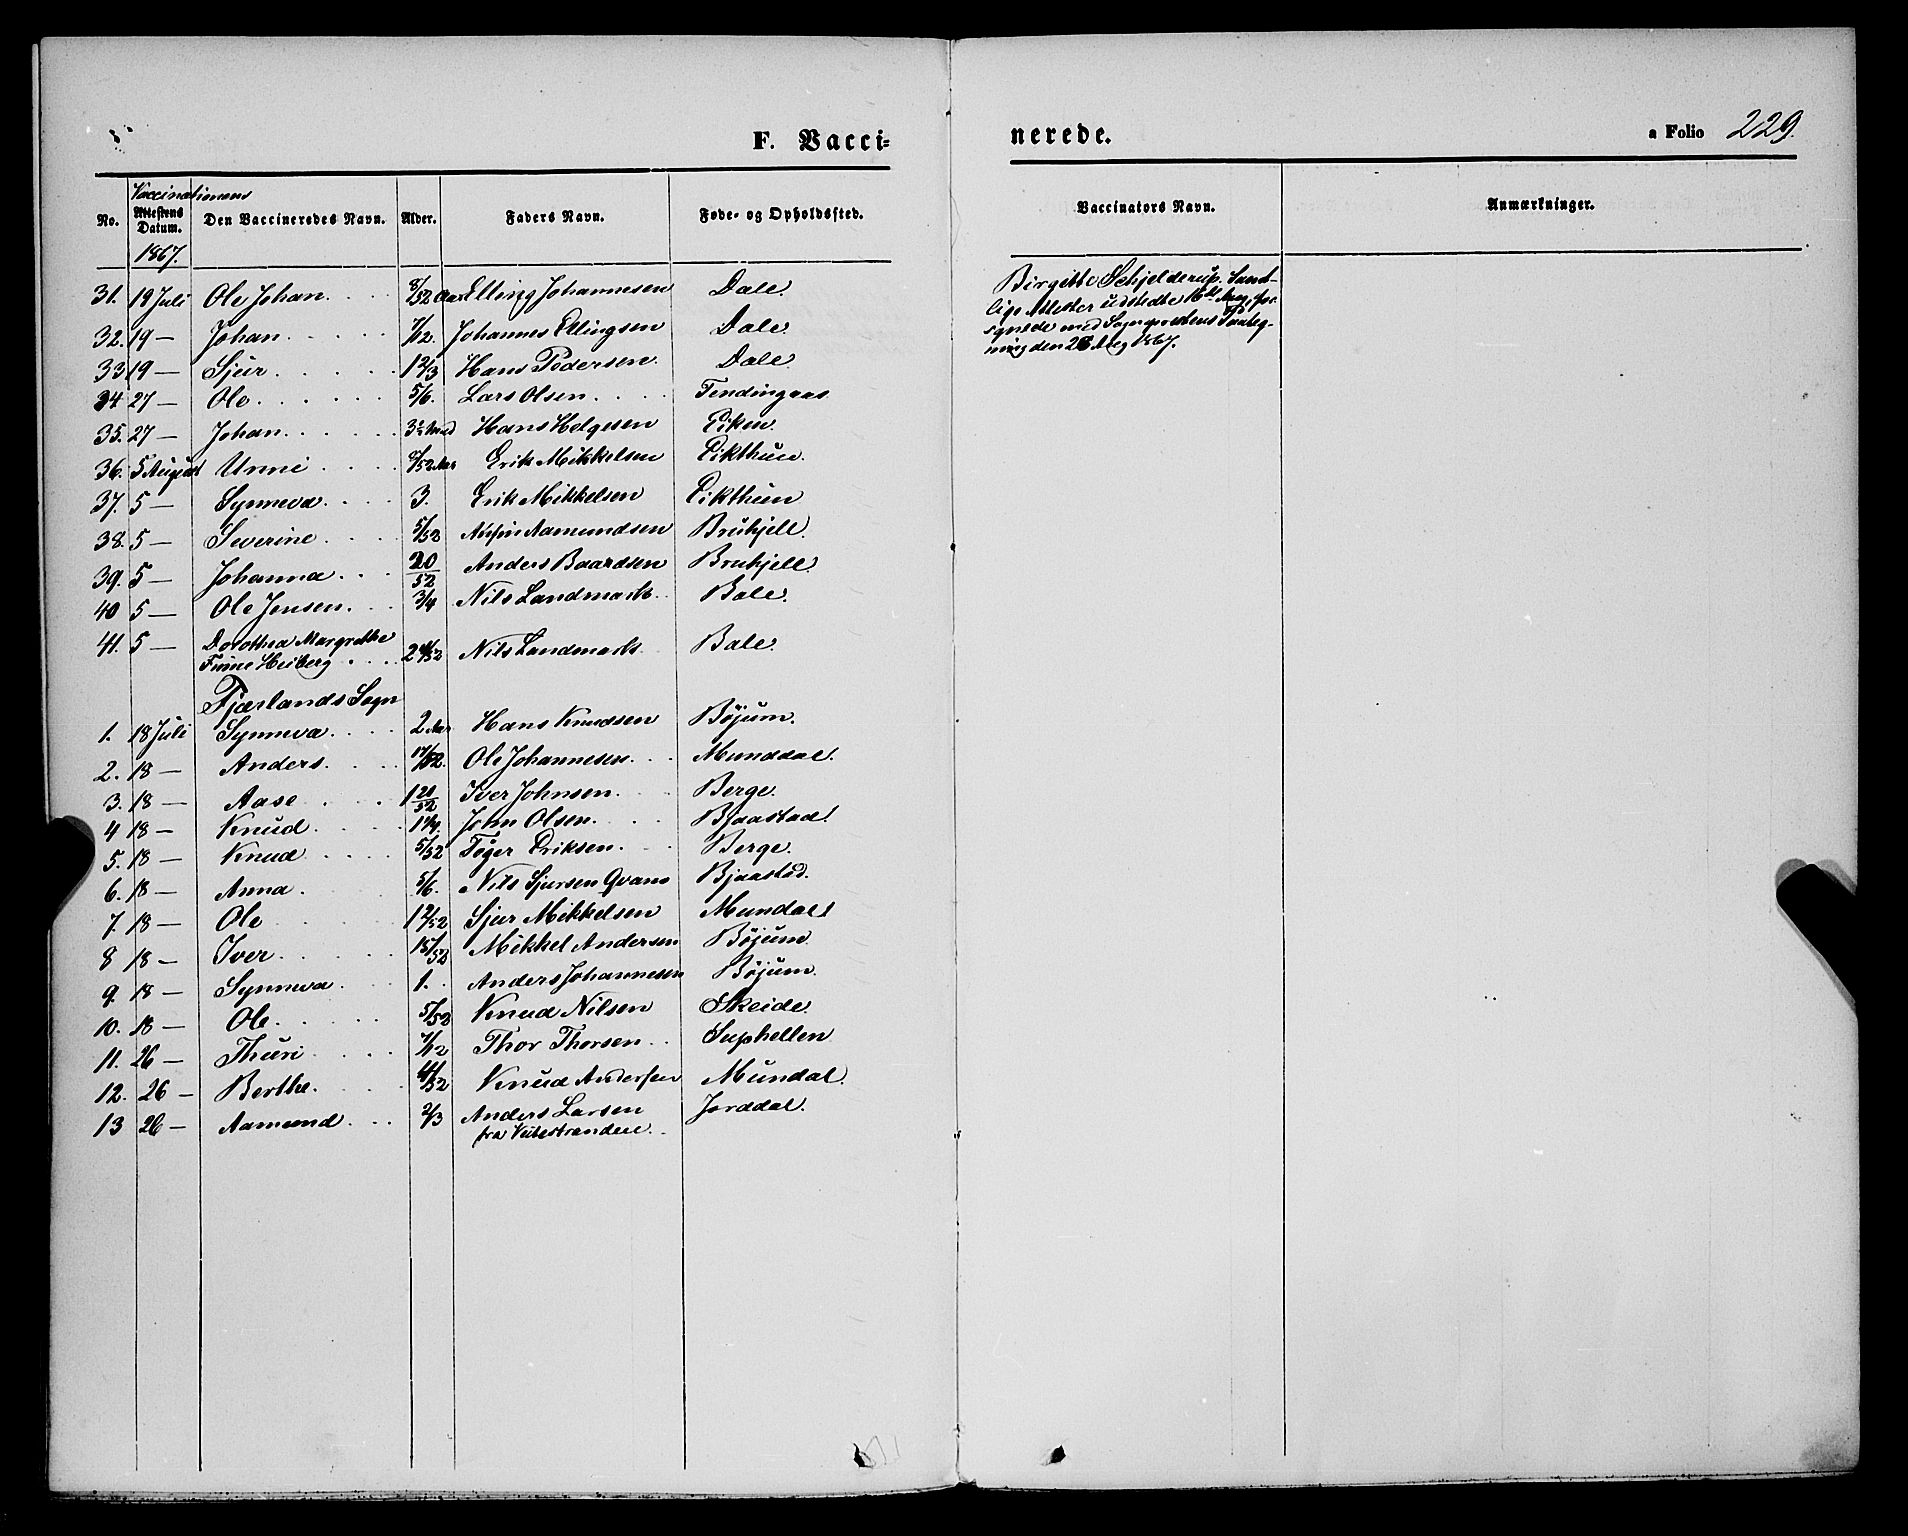 F. Vacci-
nerede.
a Folio 229.
Vaccinationens
No. Attestens Datum. Den Vaccineredes Navn. Alder. Faders Navn. Føde- og Opholdssted. Vaccinators Navn. Anmærkninger.
1867.
31. 19 Juli Ole Johan 8/52 Aar Elling Johannesen Dale.
32. 19 — Johan 7/12. Johannes Ellingsen Dale.
33 19 — Sjur 1 2/3 Hans Pedersen. Dale.
34 27 — Ole 5/6. Lars Olsen
35. 27 — Johan Hans Helgesen Eiken.
36. 5 August Unni 8/52 Aar Erik Mikkelsen Eikthun.
37. 5 — Synneva 3. Erik Mikkelsen Eikthun
38. 5 — Severine 5/52 Aamundsen Bruhjell.
39. 5 — Johanna 20/52 Anders Baardsen Bruhjell.
40 5 — Ole Jensen 3/4 Nils Landmark Bale.
41. 5 — Dorothea Margrethe Heiberg Nils Landmark Bale.
Fjærlands Sogn
1. 18 Juli Synneva 2 Aar Hans Knudsen Bøjum.
2. 18 — Anders. Ole Johannesen Munddal.
3. 18 — Aase 1 20/52 Iver Johnsen Berge.
4 18 — Knud 1 1/4. John Olsen Bjaastad.
5. 18 — Knud 5/52 Tøger Eriksen Berge.
6. 18 — Anna 5/6. Nils Sjursen Qvam Bjaastad.
7. 18 — Ole Sjur Mikkelsen Mundal
8 18 — Iver Mikkel Andersen Bøjum
9. 18 — Synneva 1. Anders Johannesen Bøjum.
10. 18 — Ole 5/52 Knud Nilsen Skeide.
11. 26 — Thuri 7/12 Thor Thorsen Suphellen
12. 26 — Berthe Knud Andersen Mundal.
13 26 — Aamund 2/3 Anders Larsen Jorddal.
fra Veitestranden.
Birgitte Schjelderup. Samt-
lige Attester udstedte 16de Aug, for
synede med Sognepræstens Paateg-
ning den 28 Aug 1867.